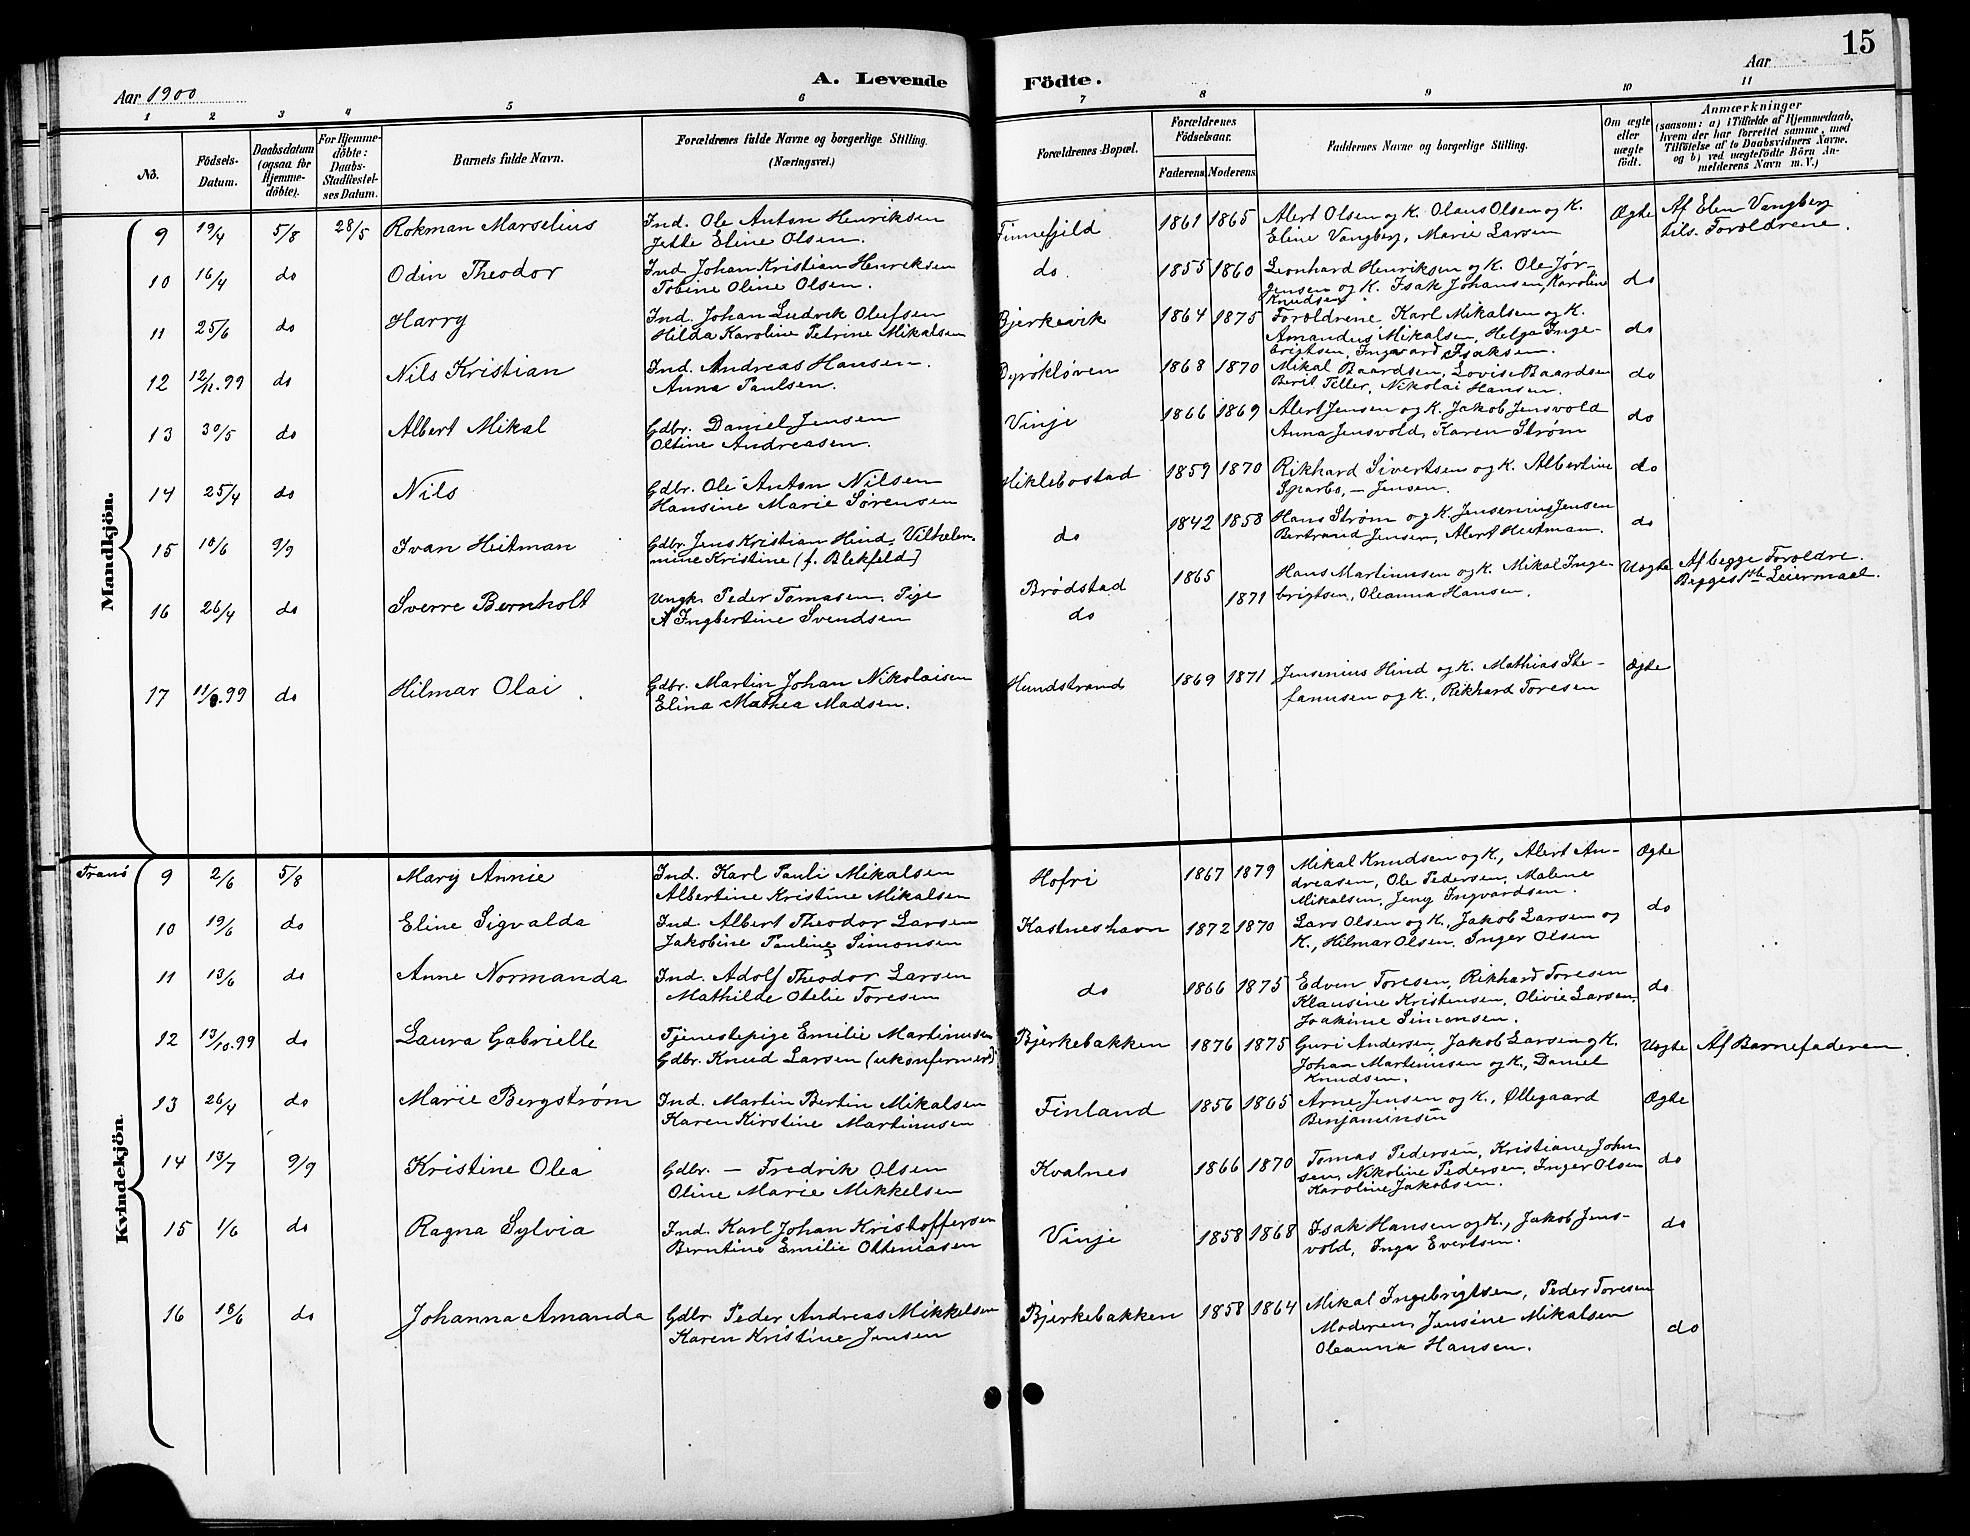 15
A. Levende Födte.
Aar 1900
Aar
1 2 3 4 5 6 7 8 9 10 11
No.
Födsels-Datum.
Daabsdatum (ogsaa for Hjemme-döbte).
For Hjemme-döbte: Daabs-Stadfestel-ses Datum.
Barnets fulde Navn.
Forældrenes fulde Navne og borgerlige Stilling. (Næringsvei.)
Forældrenes Bopæl.
Forældrenes Födselsaar.
Faderens Moderens
Faddernes Navne og borgerlige Stilling.
Om ægte eller uægte födt.
Anmærkninger
(saasom: a) i Tilfælde af Hjemmedaab,
hvem der har forrettet samme, med
Tilföielse af to Daabsvidners Navne.
og b) ved uægtefödte Börn An-
melderens Navn m. V.)
Mandkjön.
9 19/4 5/8 28/5 Rokman Marselius Ind. Ole Anton Henriksen Finnefjeld 1861 1865 Alert Olsen og K. Olaus Olsen og K. Ægte Af Elen Vangberg
Jette Eline Olsen. Eline Vangberg, Marie Larsen tils. Foreldrene.
10 16/4 do Odin Theodor Ind. Johan Kristian Henriksen do. 1855 1860 Leonhard Henriksen og K. Ole Jør- do
Tobine Oline Olsen. gensen og K. Isak Johansen, Karoline
Knudsen.
11 25/6 do Harry Ind. Johan Ludvik Olufsen Bjerkevik 1864 1875 Foreldrene Karl Mikalsen og K. do
Hilda Karoline Petrine Mikalsen Amandus Mikalsen, Helga Inge-
brigtsen, Ingvard Isaksen.
12 12/12.99 do Nils Kristian Ind. Andreas Hansen. Dyrökløven 1868 1870 Mikal Baardsen, Lovise Baardsen do
Anna Paulsen. Beril Teller, Nikolai Hansen.
13 30/5 do Albert Mikal Gdbr. Daniel Jensen Vinje 1866 1869 Alert Jensen og K. Jakob Jensvold do
Oltine Andreasen. Anna Jensvold, Karen Strøm
14 25/4 do Nils Gdbr. Ole Anton Nilsen Hiklebostad 1859 1870 Rikhard Sivertsen og K. Albertine do
Hansine Marie Sørensen Sparbo, – Jensen.
15 10/6 9/9 Ivan Heitman Gdbr. Jens Kristian Hind, Vilhelm- do 1842 1858 Hans Strøm og K. Jensenius Jensen do
mine Kristine (f. Blekfeld) Bertrand Jensen, Alert Heitman.
16 26/4 do Sverre Bernholt Ungk. Peder Tomasen, Pige Brødstad 1865 Hans Martinusen og K. Mikal Inge- Uægte Af begge Foreldre.
A Ingbertine Svendsen do 1871 brigtsen, Oleanna Hansen. Begges 1ste Leiermaal.
17 11/8.99 do Hilmar Olai. Gdbr. Martin Johan Nikolaisen Hundstrand 1869 1871 Jensenius Hind og K. Mathias Ste- Ægte
Elina Mathea Madsen. fanusen og K., Rikhard Toresen
Tranö
Kvindekjön.
9 2/6 5/8 Mary Annie Ind. Karl Pauli Mikalsen Hofri 1867 1879 Mikal Knudsen og K., Alert An- Ægte
Albertine Kristine Mikalsen dreasen, Ole Pedersen, Malene
Mikalsen, Jeny Ingvardsen.
10 19/6 do Eline Sigvalda Ind. Albert Theodor Larsen Kastneshavn 1872 1870 Lars Olsen og K., Jakob Larsen og do
Jakobine Pauline Simonsen K., Hilmar Olsen, Inger Olsen
11 13/6 do Anne Normanda Ind. Adolf Theodor Larsen do 1866 1875 Edven Toresen, Rikhard Toresen do
Mathilde Otelie Toresen Klausine Kristensen, Olivie Larsen,
Joakime Simonsen.
12 13/10.99 do Laura Gabrielle Tjenestepige Emilie Martinusen Bjerkebakken 1876 1875 Guri Andersen, Jakob Larsen og K. Uægte Af Barnefaderen.
Gdbr. Knud Larsen (ukonfermer.) Johan Martinusen og K., Daniel
Knudsen.
13 26/4 do Marie Bergstrøm Ind. Martin Bertin Mikalsen Finland 1856 1865 Arne Jensen og K., Øllegaard Ægte
Karen Kirstine Martinusen Benjaminsen
14 13/7 9/9 Kristine Olea Gdbr. – Fredrik Olsen Kvalnes 1866 1870 Tomas Pedersen, Kristiane John- do
Oline Marie Mikkelsen sen, Nikoline Pedersen, Inger Olsen
Karoline Jakobsen.
15 1/6 do Ragna Sylvia Ind. Karl Johan Kristoffersen Vinje 1858 1868 Isak Hansen og K., Jakob Jens- do
Berntine Emilie Otteniasen vold, Inga Evertsen.
16 18/6 do Johanna Amanda Gdbr. Peder Andreas Mikkelsen Bjerkebakken 1858 1864 Mikal Ingebrigtsen, Peder Toresen do
Karen Kristine Jensen Moderen, Jensine Mikalsen
Oleanna Hansen.